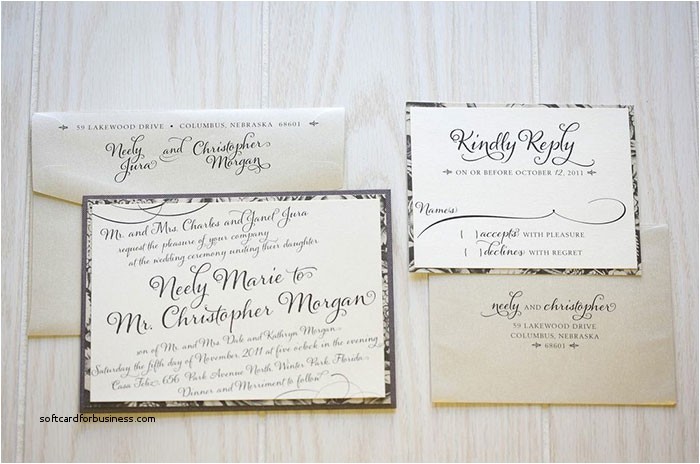 59 LAKEWOOD DRIVE • COLUMBUS, NEBRASKA 68601
Neely Jura and Christopher Morgan
Mr. and Mrs. Charles and Janel Jura
request the pleasure of your company
at the wedding ceremony uniting their daughter
Neely Marie to
Mr. Christopher Morgan
son of Mr. and Mrs. Dale and Kathryn Morgan
Saturday the fifth day of November, 2011 at five o'clock in the evening
Casa Feliz, 656 Park Avenue North Winter Park Florida
Dinner and Merriment to follow
Kindly Reply
ON OR BEFORE OCTOBER 12, 2011
Name(s)
[ ] accepts WITH PLEASURE
[ ] declines WITH REGRET
neely AND christopher
59 LAKEWOOD DRIVE
COLUMBUS, NEBRASKA
68601
softcardforbusiness.com